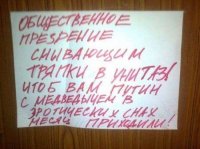 ОБЩЕСТВЕННОЕ
ПРЕЗРЕНИЕ
СМЫВАЮЩИМ
ТРЯПКИ В УНИТАЗ!
ЧТОБ ВАМ ПУТИН
С МЕДВЕДЫЧЕМ В
ЭРОТИЧЕСКИХ СНАХ
МЕСЯЦ ПРИХОДИЛИ!